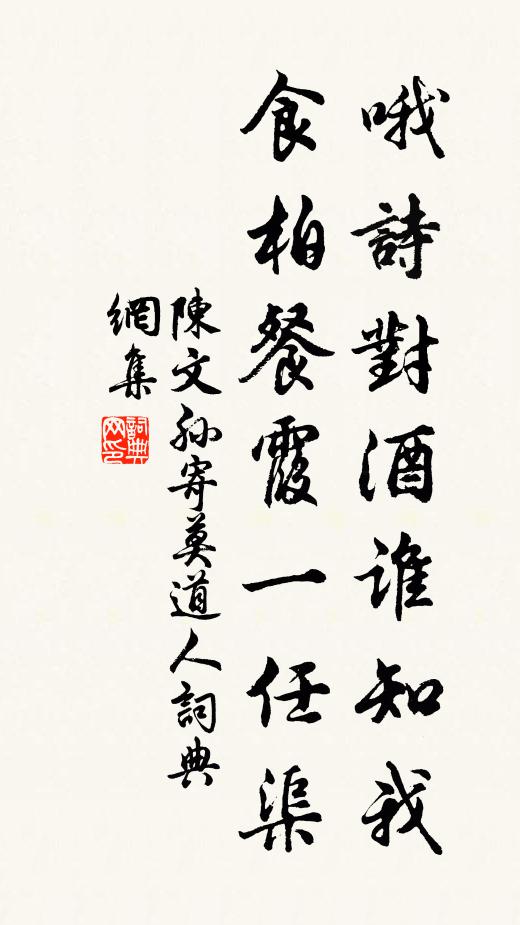 哦詩對酒誰知我
食柏餐霞一任渠
陳文孫寄莫道人詞典
網集
詞典
网印